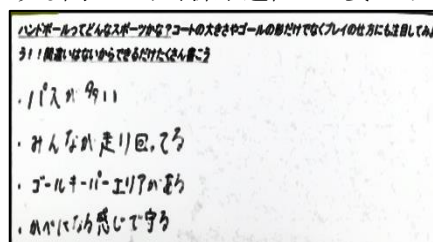 ハンドボールってどんなスポーツかな?コートの大きさやゴールの形だけでなくプレイの仕方にも注目してみよ
う!!間違いはないからできるだけたくさん書こう
・パスが多い
・みんなが走り回ってる
・ゴールキーパーエリアがある
・かべになる感じで守る